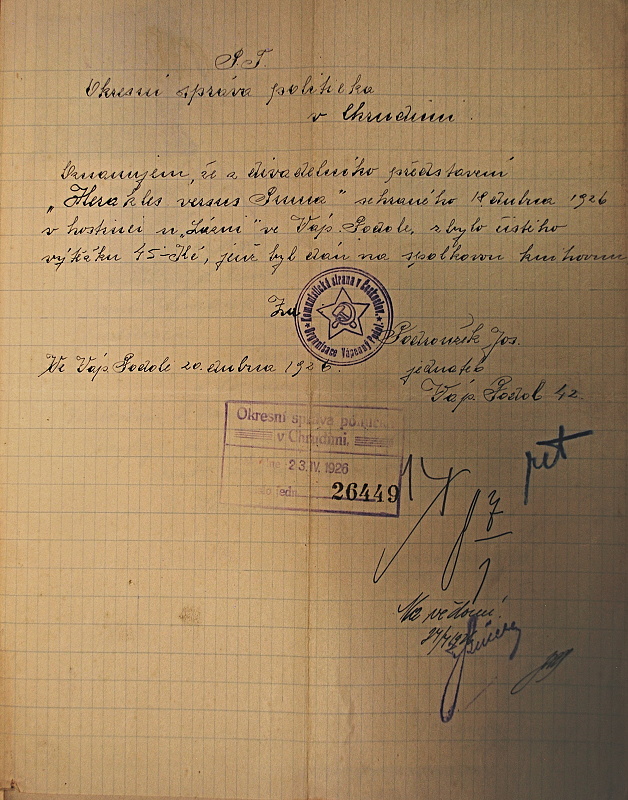 P.T.
Okresní správa politická
v Chrudimi.
Oznamujem, že z divadelního představení
„Herakles versus Puma" sehraného 18 dubna 1926
v hostinci u „Lázní" ve Váp. Podole, zbylo čistého
výtěžku 45 Kč, jenž byl dán na spolkovou knihovnu
Za
Komunistická strana v Českoslov.
Organisace Vápenný Podol.
Podroužek Jos.
Ve Váp. Podole 20. dubna 1926.
jednatel
Váp. Podol 42.
Okresní správa politická
v Chrudimi,
Dne 23. IV. 1926
26449
Na vědomí